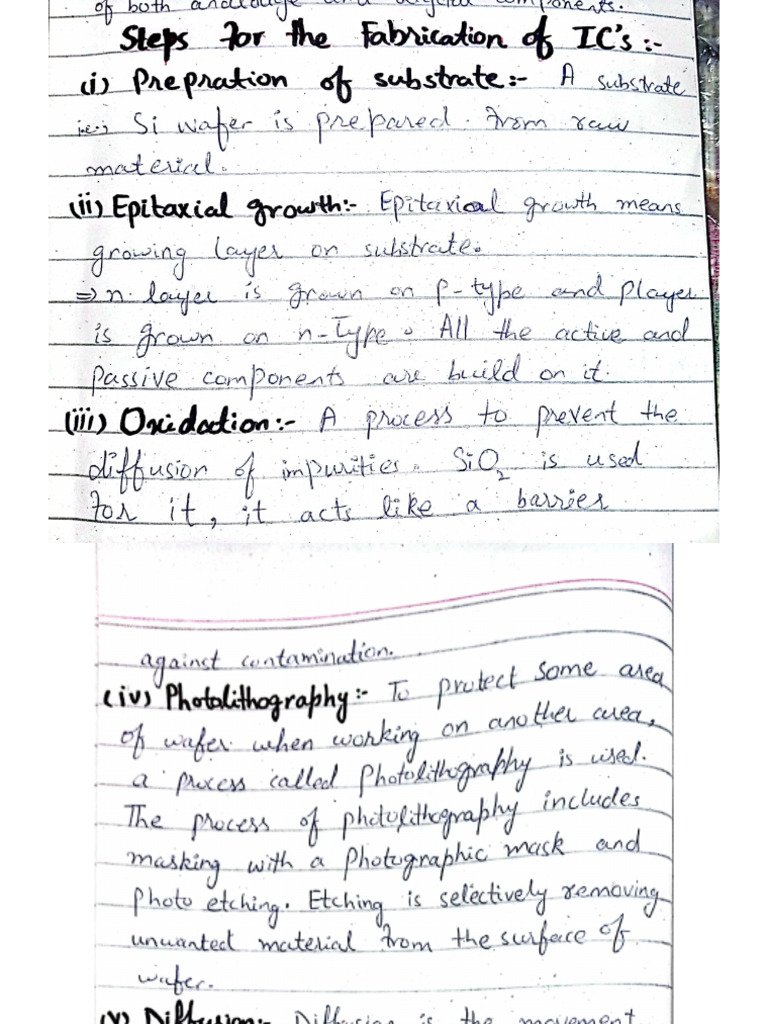 of both analouge and digital components.
Steps for the Fabrication of IC's :-
(i) Prepration of substrate:- A substrate
i.e., Si wafer is prepared from raw
material.
(ii) Epitaxial growth:- Epitaxical growth means
growing layer on substrate.
⇒ n layer is grown on p-type and player
is grown on n-Type. All the active and
passive components are build on it.
(iii) Oxidation:- A process to prevent the
diffusion of impurities. SiO₂ is used
for it, it acts like a barrier
against contamination.
(iv) Photolithography:- To protect some area
of wafer when working on another area,
a process called Photolithography is used.
The process of photolithography includes
masking with a photographic mask and
photo etching. Etching is selectively removing
unwanted material from the surface of
wafer.
(v) Diffusion:- Diffusion is the movement